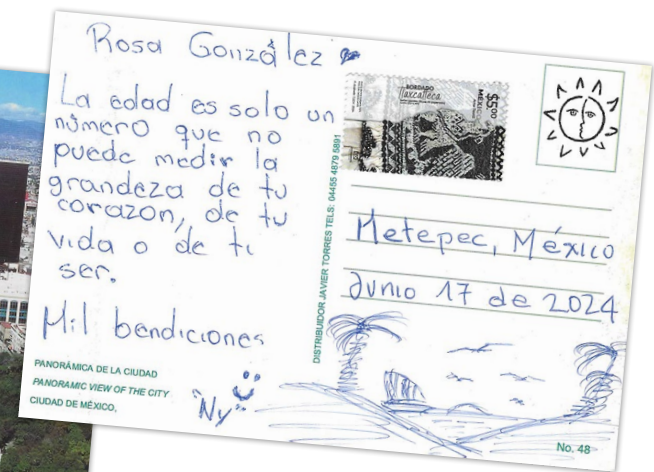 Rosa González
La edad es solo un
número que no
puede medir la
grandeza de tu
corazon, de tu
vida o de ti
ser.
Mil bendiciones
"Ny"
PANORÁMICA DE LA CIUDAD
PANORAMIC VIEW OF THE CITY
CIUDAD DE MÉXICO,
DISTRIBUIDOR JAVIER TORRES TELS: 04455 4879 5891
BORDADO
Tlaxcalteca
MÉXICO
$5.00
Metepec, México
Junio 17 de 2024
No. 48